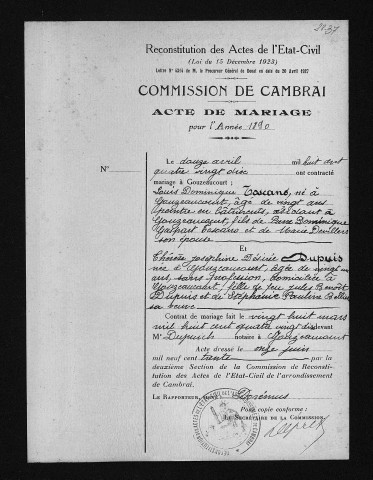 2137
Reconstitution des Actes de l'Etat-Civil
(Loi du 15 Décembre 1923)
Lettre N° de M. le Procureur Général de Douai en date du 20 Avril 1927
COMMISSION DE CAMBRAI
ACTE DE MARIAGE
pour l'Année 1890
N°
Le douze avril mil huit cent
quatre vingt dix ont contracté
mariage à Gouzeaucourt :
Louis Dominique Toscano, né à
Gouzeaucourt, âgé de vingt ans
peintre en bâtiments, domicilié à
Gouzeaucourt, fils de Pierre Dominique
Gaspart Toscano et de Marie Devillers
son épouse
Et
Thérèse Joséphine Désirée Dupuis
née à Gouzeaucourt, âgée de vingt un
ans, sans profession, domiciliée à
Gouzeaucourt, fille de feu Jules Benoît
Dupuis et de Stéphanie Pauline
sa veuve
Contrat de mariage fait le vingt huit mars
mil huit cent quatre vingt dix devant
Me Dupuich notaire à Gouzeaucourt
Acte dressé le onze juin
mil neuf cent trente par la
deuxième Section de la Commission de Reconsti-
tution des Actes de l'Etat-Civil de l'arrondissement
de Cambrai.
LE RAPPORTEUR,
Pour copie conforme :
LE SECRÉTAIRE DE LA COMMISSION